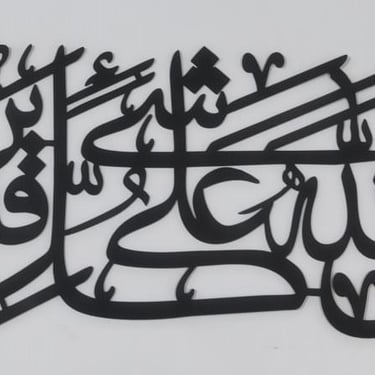 الله على كل شيء قدير